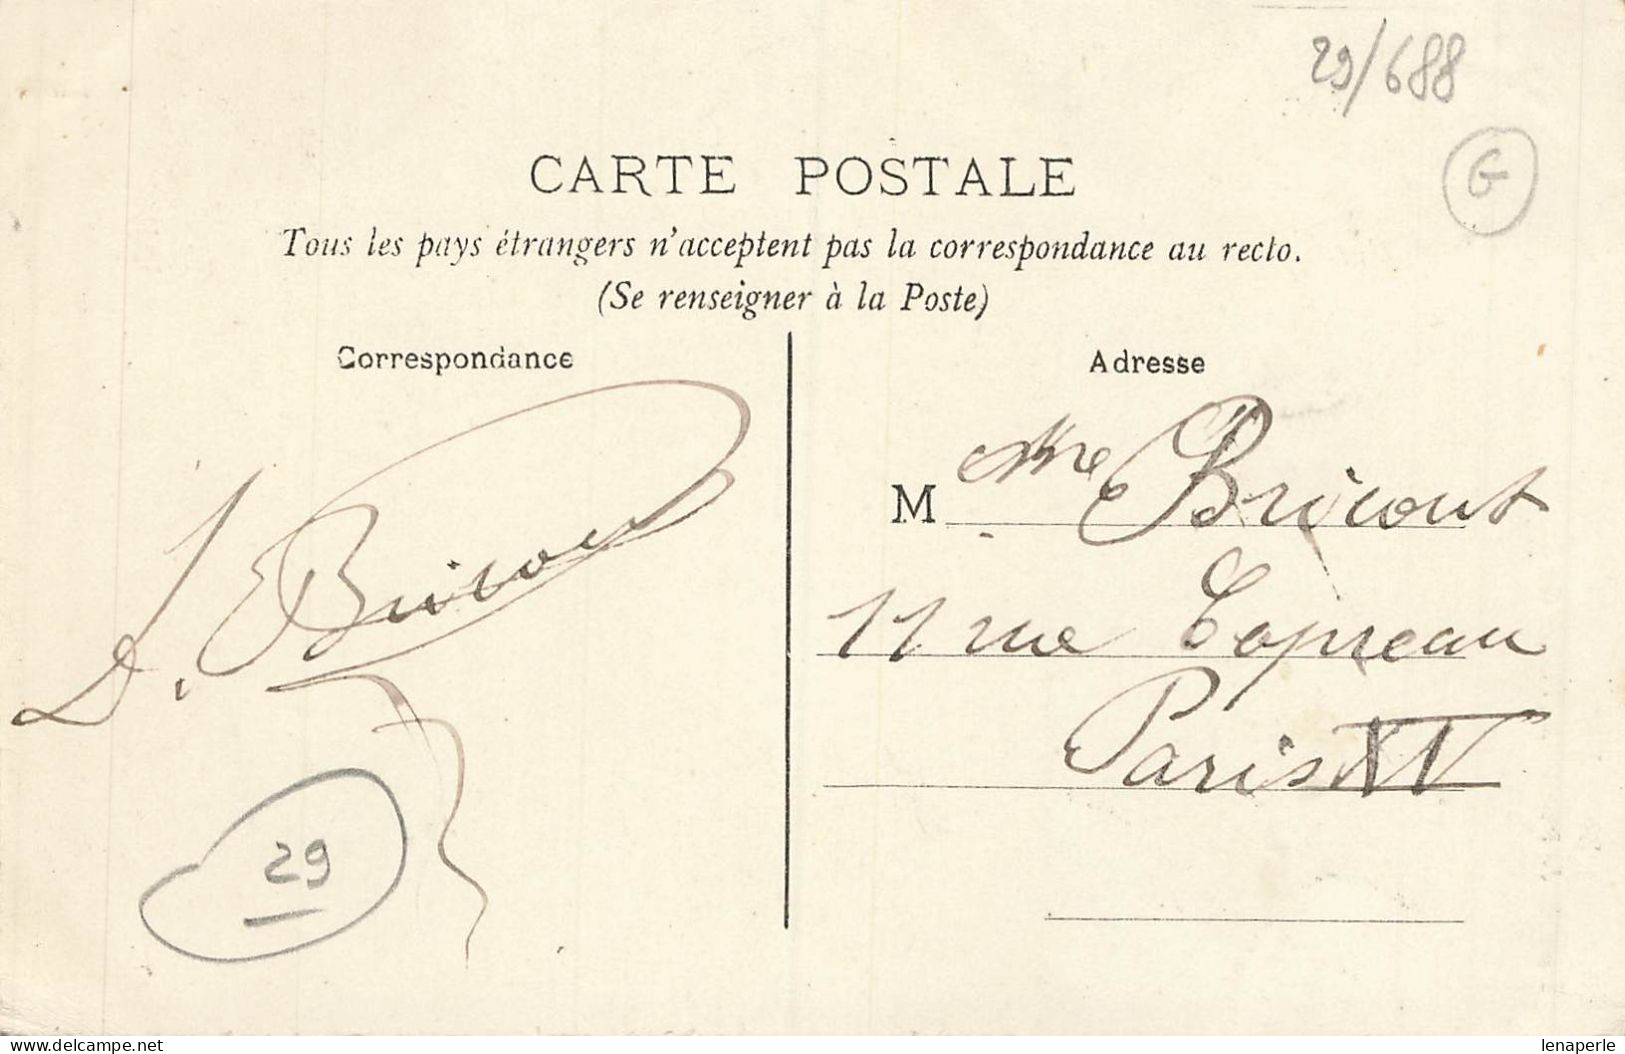 29/688
G
CARTE POSTALE
Tous les pays étrangers n'acceptent pas la correspondance au recto.
(Se renseigner à la Poste)
Correspondance
Adresse
M me Bricout
11 rue Copreau
Paris XV
D. Bricout
29
www.delcampe.net
lenaperle